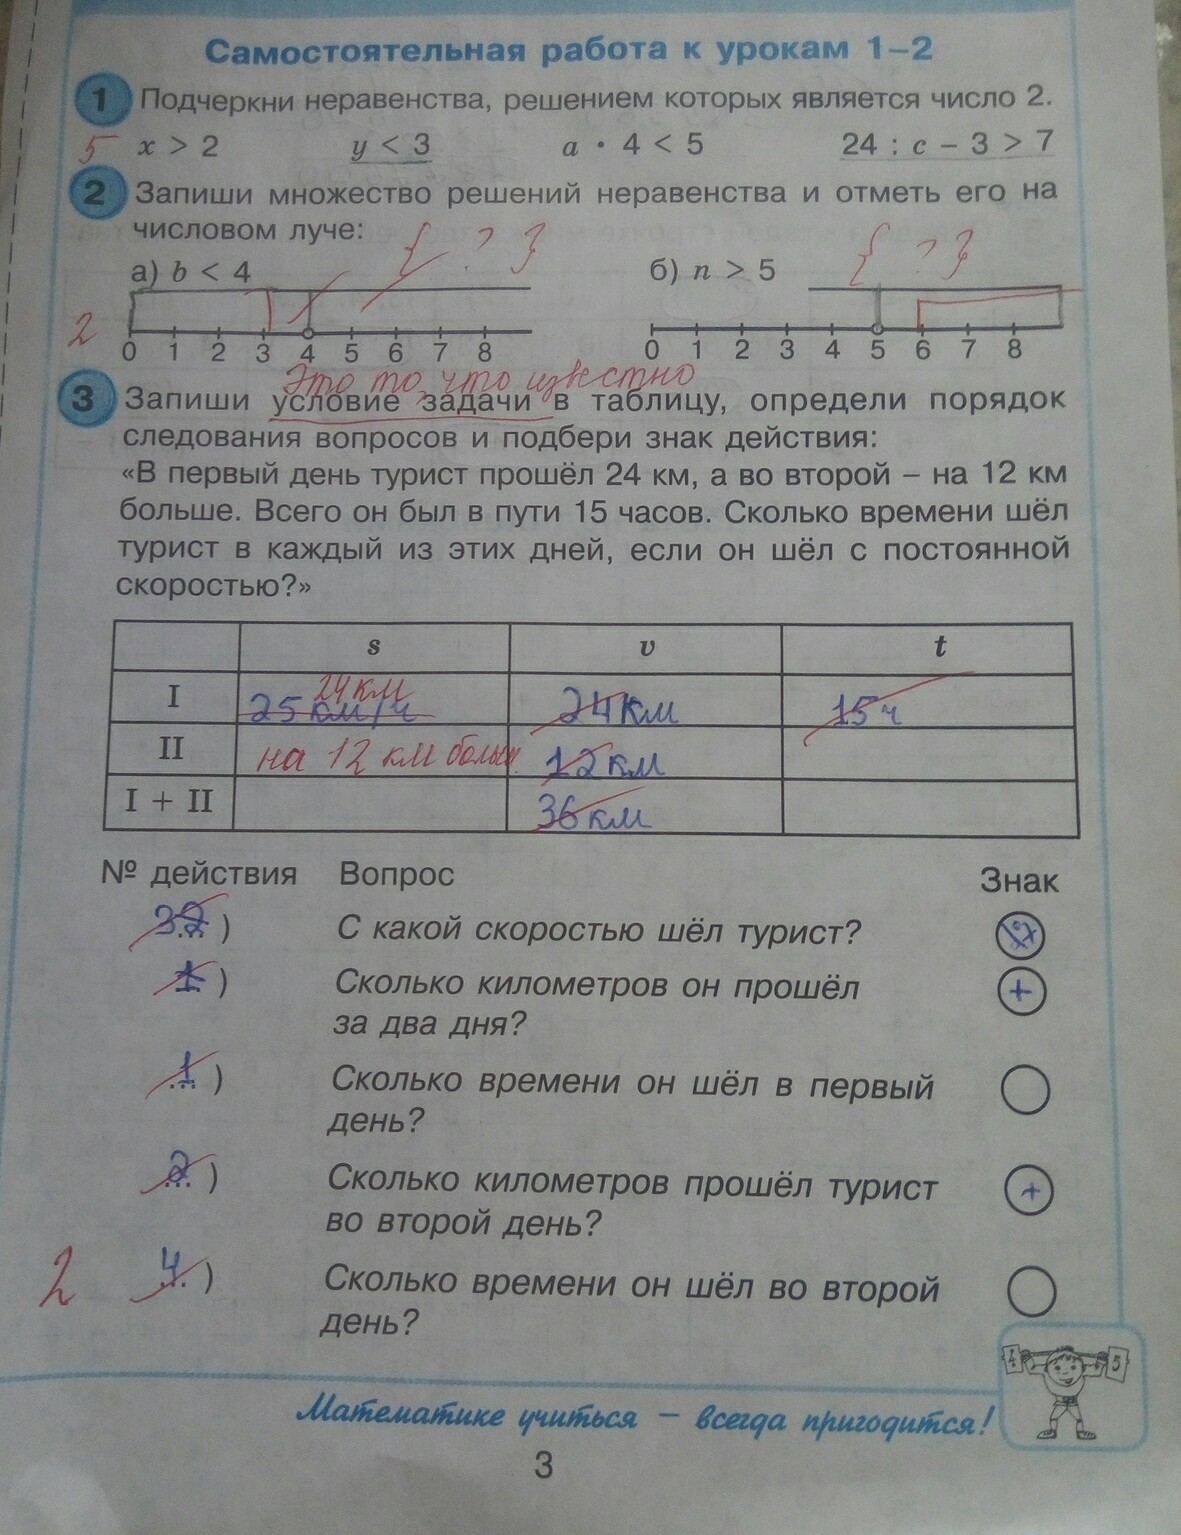 Самостоятельная работа к урокам 1–2
1 Подчеркни неравенства, решением которых является число 2.
5 x > 2 y < 3 a · 4 < 5 24 : c – 3 > 7
2 Запиши множество решений неравенства и отметь его на
числовом луче:
{ ? } { ? }
а) b < 4 б) n > 5
2
0 1 2 3 4 5 6 7 8 0 1 2 3 4 5 6 7 8
Это то, что известно
3 Запиши условие задачи в таблицу, определи порядок
следования вопросов и подбери знак действия:
«В первый день турист прошёл 24 км, а во второй – на 12 км
больше. Всего он был в пути 15 часов. Сколько времени шёл
турист в каждый из этих дней, если он шёл с постоянной
скоростью?»
s v t
24 км
I 25 км/ч 24 км 15 ч
II на 12 км больш. 12 км
I + II 36 км
№ действия Вопрос Знак
3 2 ...) С какой скоростью шёл турист?
1 ...) Сколько километров он прошёл +
за два дня?
1 ...) Сколько времени он шёл в первый
день?
2 ...) Сколько километров прошёл турист +
во второй день?
2 4 ...) Сколько времени он шёл во второй
день?
4 5
Математике учиться – всегда пригодится!
3